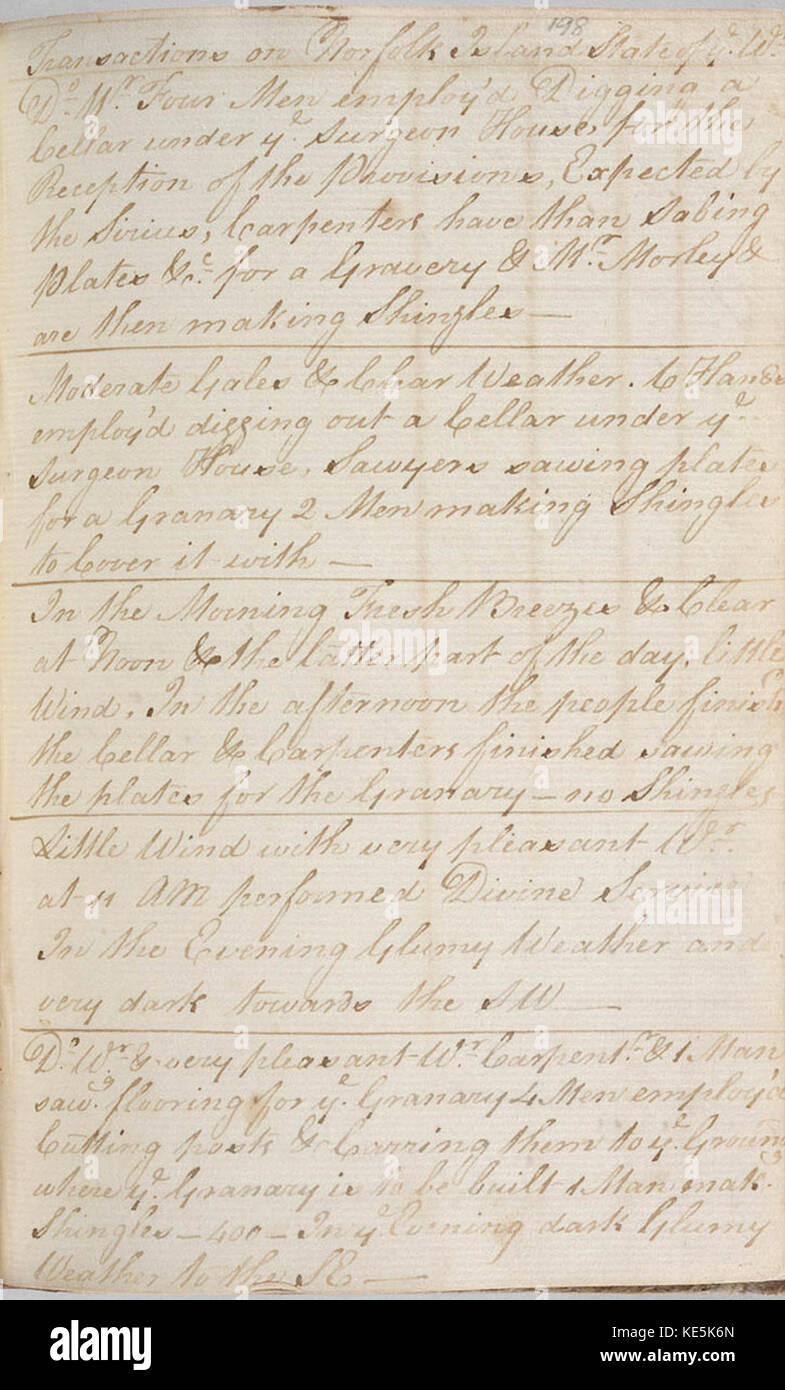 198
Transactions on Norfolk Island State of ye. Wr.
Do. Wr. Four Men employ'd Digging a
Cellar under ye. Surgeon House, for the
Reception of the Provisions, Expected by
the Sirius, Carpenters have than Sabing
plates &c. for a Gravery & Mr. Morley &
are then making Shingles —
Moderate Gales & Clear Weather. 6 Hands
employ'd digging out a Cellar under ye.
Surgeon House, Sawyers sawing plates
for a Granary 2 Men making Shingles
to Cover it with —
In the Morning Fresh Breezes & Clear
at Noon & the latter part of the day, little
Wind. In the afternoon the people finish
the Cellar & Carpenters finished sawing
the plates for the Granary — no Shingles
Little Wind with very pleasant Wr.
at 11 AM performed Divine Service
In the Evening Glumy Weather and
very dark towards the SW —
Do. Wr. & very pleasant Wr. Carpentr. & 1 Man
sawg. flooring for ye. Granary 4 Men employ'd
Cutting posts & Carring them to ye. Ground
where ye. Granary is to be built 1 Man mak.
Shingles — 400 — In ye. Evening dark Glumy
Weather to the SE —
alamy
alamy
a alamy stock photo
KE5K6N
www.alamy.com